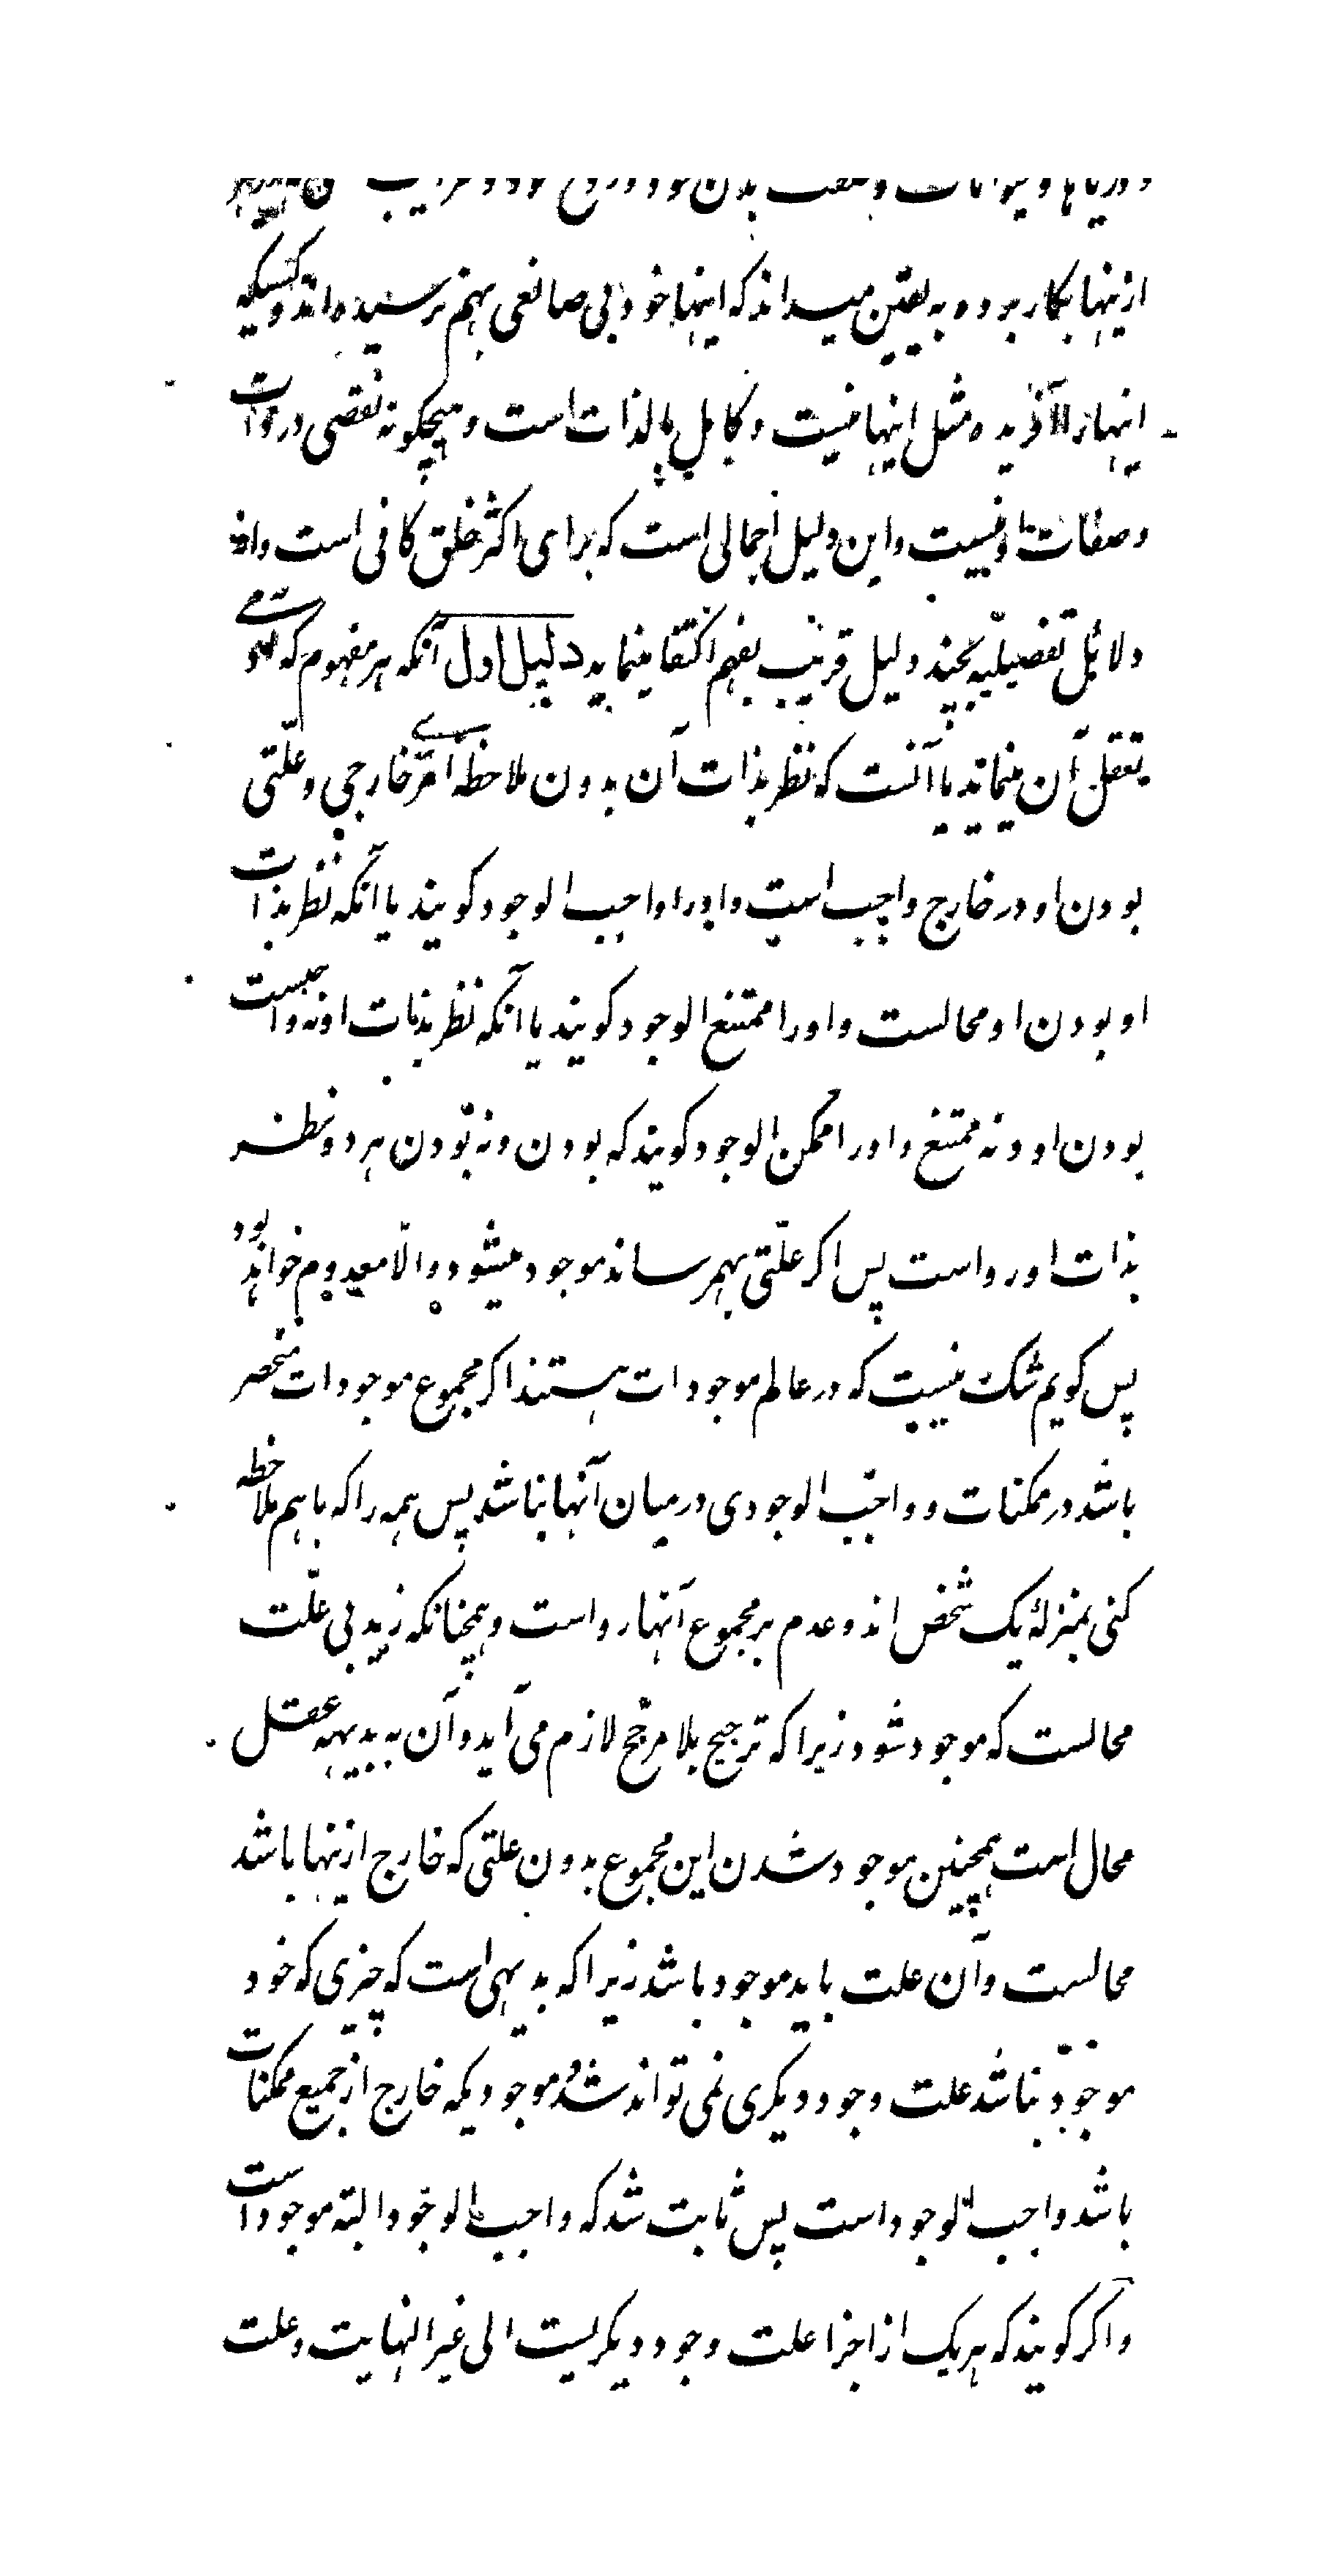 و دریاها و حیوانات و خلقت بدن خود و روح خود و
ازینها بکار برده به یقین میداند که اینها خود بی صانعی بهم نرسیده اند و کسیکه
اینها را آفریده مثل اینها نیست و کامل بالذات است و هیچگونه نقصی در ذات
و صفات او نیست و این دلیل اجمالی است که برای اکثر خلق کافی است و از
دلائل تفصیلیه بچند دلیل قریب بفهم اکتفا مینماید دلیل اول آنکه هر مفهوم که آدمی
تعقل آن مینماید یا آنست که نظر بذات آن بدون ملاحظه امری خارجی و علّتی
بودن او در خارج واجب است و او را واجب الوجود کویند یا آنکه نظر بذات
او بودن او محالست و او را ممتنع الوجود کویند یا آنکه نظر بذات او نه واجبست
بودن او و نه ممتنع و او را ممکن الوجود کویند که بودن و نه بودن هر دو نظر
بذات او رواست پس اکر علّتی بهم رساند موجود میشود و الّا معدوم خواهد بود
پس کویم شک نیست که در عالم موجودات هستند اکر مجموع موجودات منحصر
باشد در ممکنات و واجب الوجودی در میان آنها نباشد پس همه را که باهم ملاحظه
کنی بمنزلهٔ یک شخص اند و عدم بر مجموع آنها رواست و همچنانکه زید بی علّت
محالست که موجود شود زیرا که ترجیح بلا مرجّح لازم می آید و آن به بدیهه عقل
محال است همچنین موجود شدن این مجموع بدون علتی که خارج ازینها باشد
محالست و آن علت باید موجود باشد زیرا که بدیهی است که چیزی که خود
موجود نباشد علت وجود دیکری نمی تواند شد و موجودیکه خارج از جمیع ممکنات
باشد واجب الوجود است پس ثابت شد که واجب الوجود البته موجود است
و اکر کویند که هر یک از اجزا علت وجود دیکریست الی غیر النهایت و علت